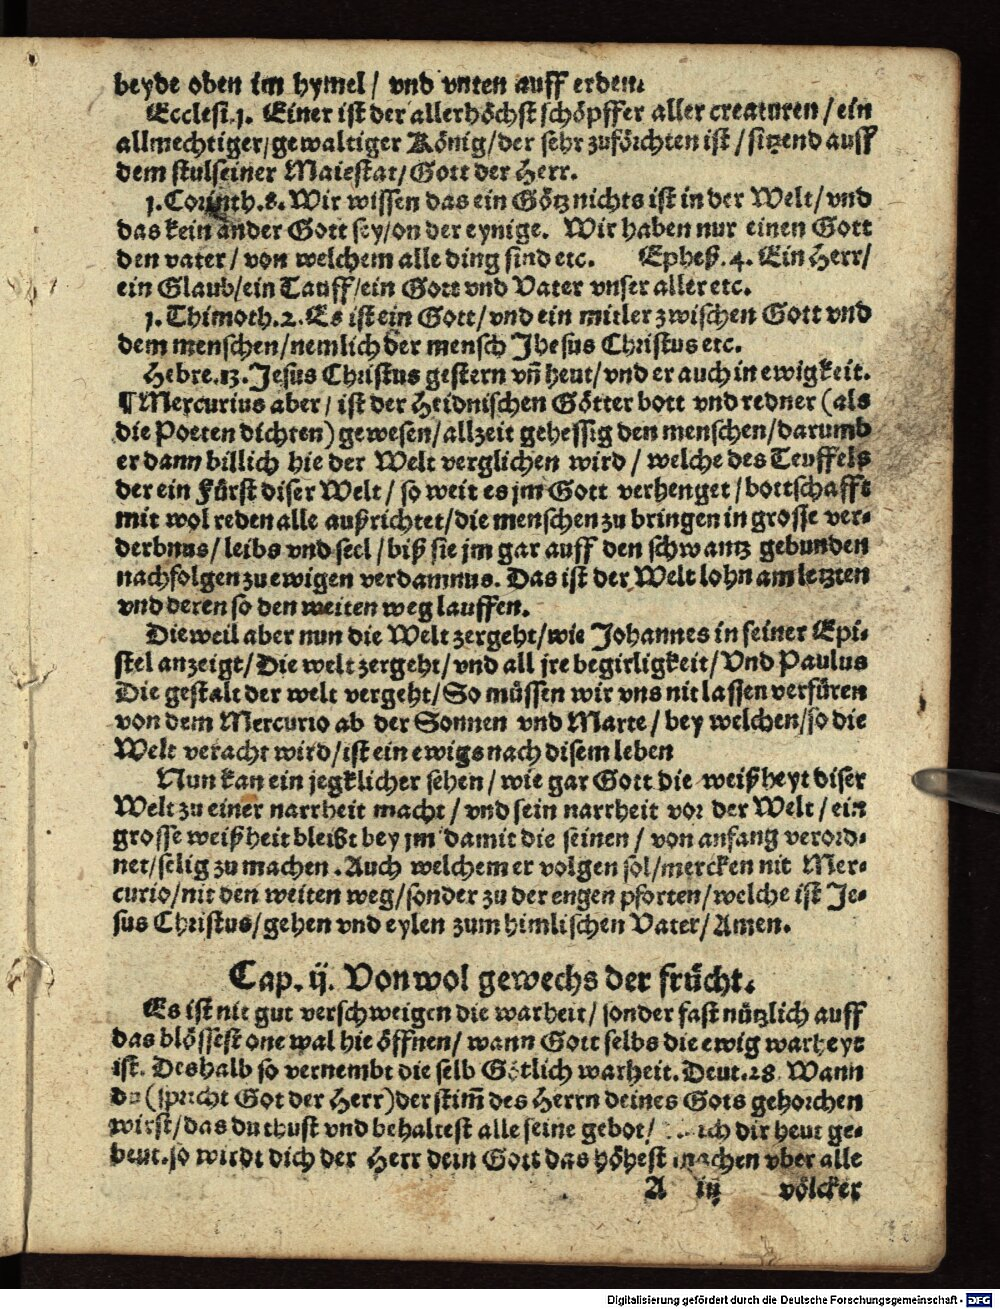 beyde oben im hymel / vnd vnten auff erden.
Ecclesi.j. Einer ist der allerhöchst schöpffer aller creaturen / ein
allmechtiger/gewaltiger König/der sehr zuförchten ist / sitzend auff
dem stulseiner Maiestat/ Gott der Herr.
j.Corinth.8. Wir wissen das ein Götz nichts ist in der Welt/ vnd
das kein ander Gott sey/on der eynige. Wir haben nur einen Gott
den vater / von welchem alle ding sind etc. Epheß.4. Ein Herr/
ein Glaub/ein Tauff/ein Gott vnd Vater vnser aller etc.
j.Thimoth.2. Es ist ein Gott/vnd ein mitler zwischen Gott vnd
dem menschen/nemlich der mensch Jhesus Christus etc.
Hebre.13. Jesus Christus gestern vñ heut/vnd er auch in ewigkeit.
¶ Mercurius aber / ist der Heidnischen Götter bott vnd redner (als
die Poeten dichten) gewesen/allzeit gehessig den menschen/darumb
er dann billich hie der Welt verglichen wird / welche des Teuffels
der ein Fürst diser Welt / so weit es jm Gott verhenget / bottschafft
mit wol reden alle außrichtet/die menschen zu bringen in grosse ver-
derbnus/leibs vnd seel / biß sie jm gar auff den schwantz gebunden
nachfolgen zu ewigen verdamnus. Das ist der Welt lohn am letzten
vnd deren so den weiten weg lauffen.
Dieweil aber nun die Welt zergeht/wie Johannes in seiner Epi-
stel anzeigt/Die welt zergeht/vnd all jre begirligkeit/Vnd Paulus
Die gestalt der welt vergeht/So müssen wir vns nit lassen verfüren
von dem Mercurio ab der Sonnen vnd Marte / bey welchen/so die
Welt veracht wird/ist ein ewigs nach disem leben
Nun kan ein jegklicher sehen / wie gar Gott die weißheyt diser
Welt zu einer narrheit macht / vnd sein narrheit vor der Welt / ein
grosse weißheit bleibt bey jm damit die seinen / von anfang verord-
net/selig zu machen. Auch welchem er volgen sol/mercken nit Mer-
curio/nit den weiten weg/sonder zu der engen pforten/welche ist Je-
sus Christus/gehen vnd eylen zum himlischen Vater/ Amen.
Cap. ij. Von wol gewechs der frücht.
Es ist nit gut verschweigen die warheit/ sonder fast nützlich auff
das blössest one wal hie öffnen/ wann Gott selbs die ewig warheyt
ist. Deshalb so vernembt die selb Götlich warheit. Deut.28. Wann
du (spricht Got der Herr) der stim̃ des Herrn deines Gots gehorchen
wirst/das du thust vnd behaltest alle seine gebot/ ich dir heut ge-
beut.so wirdt dich der Herr dein Gott das höhest machen vber alle
A iij völcker
Digitalisierung gefördert durch die Deutsche Forschungsgemeinschaft - DFG